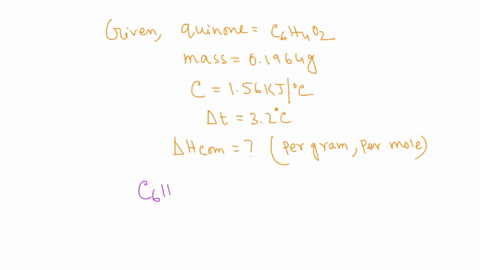 Given, quinone = C6H4O2
mass = 0.1964g
C = 1.56KJ/°C
Δt = 3.2°C
ΔHcom = ? (per gram, per mole)
C6H